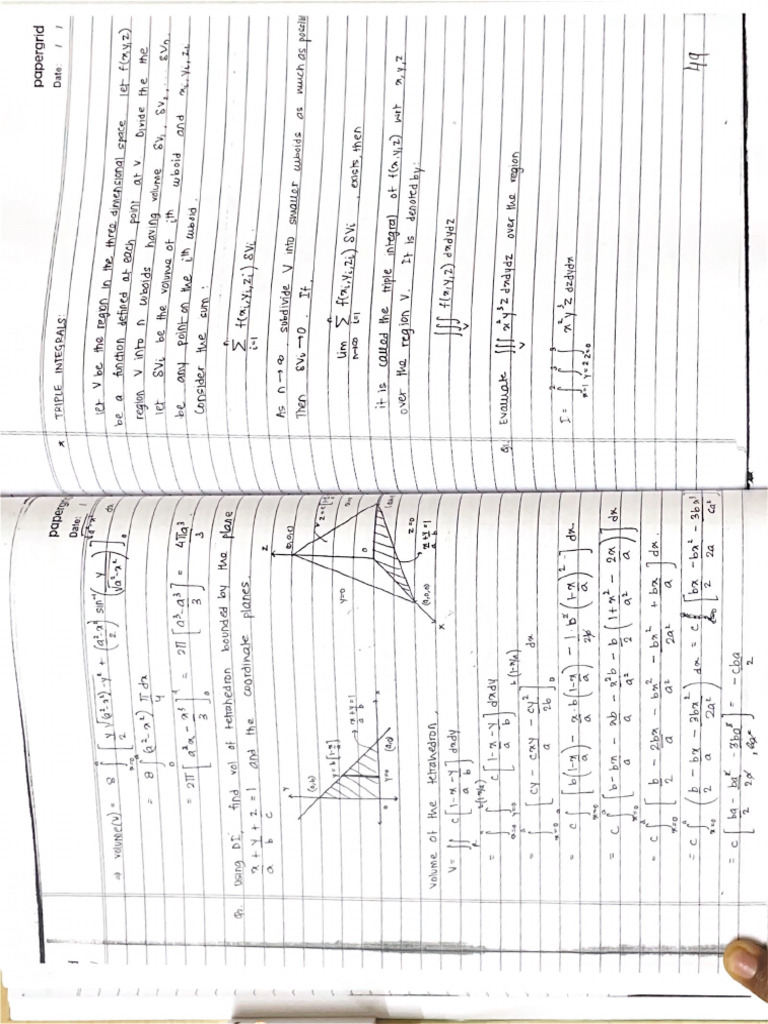 papergrid
Date: / /
⇒ volume(v) = 8 ∫ [ y√(a²-x²)-y² / 2 + (a²-x²)/2 sin⁻¹( y / √a²-x² ) ]₀
= 8 ∫₀ (a²-x²) π/4 dx
= 2π [ a²x - x³/3 ]₀ᵃ = 2π [ a³ - a³/3 ] = 4πa³/3
Q. Using DI, find vol of tetrahedron bounded by the plane
x/a + y/b + z/c = 1 and the coordinate planes.
Y
y=b[1-x/a]
x/a + y/b = 1
y=0
x
o
Z
y=0
z=0
x/a + y/b = 1
X
volume of the tetrahedron,
V = ∬ c [ 1 - x/a - y/b ] dxdy
= ∫ₓ₌₀ᵃ ∫ᵧ₌₀ᵇ⁽¹⁻ˣ/ᵃ⁾ c [ 1 - x/a - y/b ] dxdy
= ∫ₓ₌₀ᵃ [ cy - cxy/a - cy²/2b ]₀ᵇ⁽¹⁻ˣ/ᵃ⁾ dx
= c ∫ₓ₌₀ᵃ [ b(1-x/a) - x/a·b(1-x/a) - 1/2b·b²(1+x/a)² ] dx
= c ∫ₓ₌₀ᵃ [ b - bx/a - xb/a - x²b/a² - b/2 (1 + x²/a² - 2x/a) ] dx
= c ∫ₓ₌₀ᵃ [ b/2 - 2bx/a - bx²/a² - bx²/2a² + bx/a ] dx
= c ∫ₓ₌₀ᵃ ( b/2 - bx/a - 3bx²/2a² ) dx = c [ bx/2 - bx²/2a - 3bx³/6a² ]
= c [ ba/2 - ba²/2a - 3ba³/6a² ] = -cba/2
papergrid
Date: / /
* TRIPLE INTEGRALS:
let V be the region in the three dimensional space let f(x,y,z)
be a function defined at each point at V Divide the the
region V into n cuboids having volume δV₁, δV₂, ... δVn.
let δVi be the volume of ith cuboid and xi, yi, zi
be any point on the ith cuboid.
Consider the sum:
Σᵢ₌₁ⁿ f(xi, yi, zi) δVi
As n→∞, subdivide V into smaller cuboids as much as possible
Then δVi → 0. If,
lim n→∞ Σᵢ₌₁ⁿ f(xi, yi, zi) δVi, exists, then
it is called the triple integral of f(x,y,z) wrt x,y,z
over the region V. It is denoted by:
∭ᵥ f(x,y,z) dxdydz
Q1. Evaluate ∭ᵥ x²y³z dxdydz over the region
I = ∫ₓ₌₁² ∫ᵧ₌₂³ ∫ z=0 x²y³z dzdydx
49